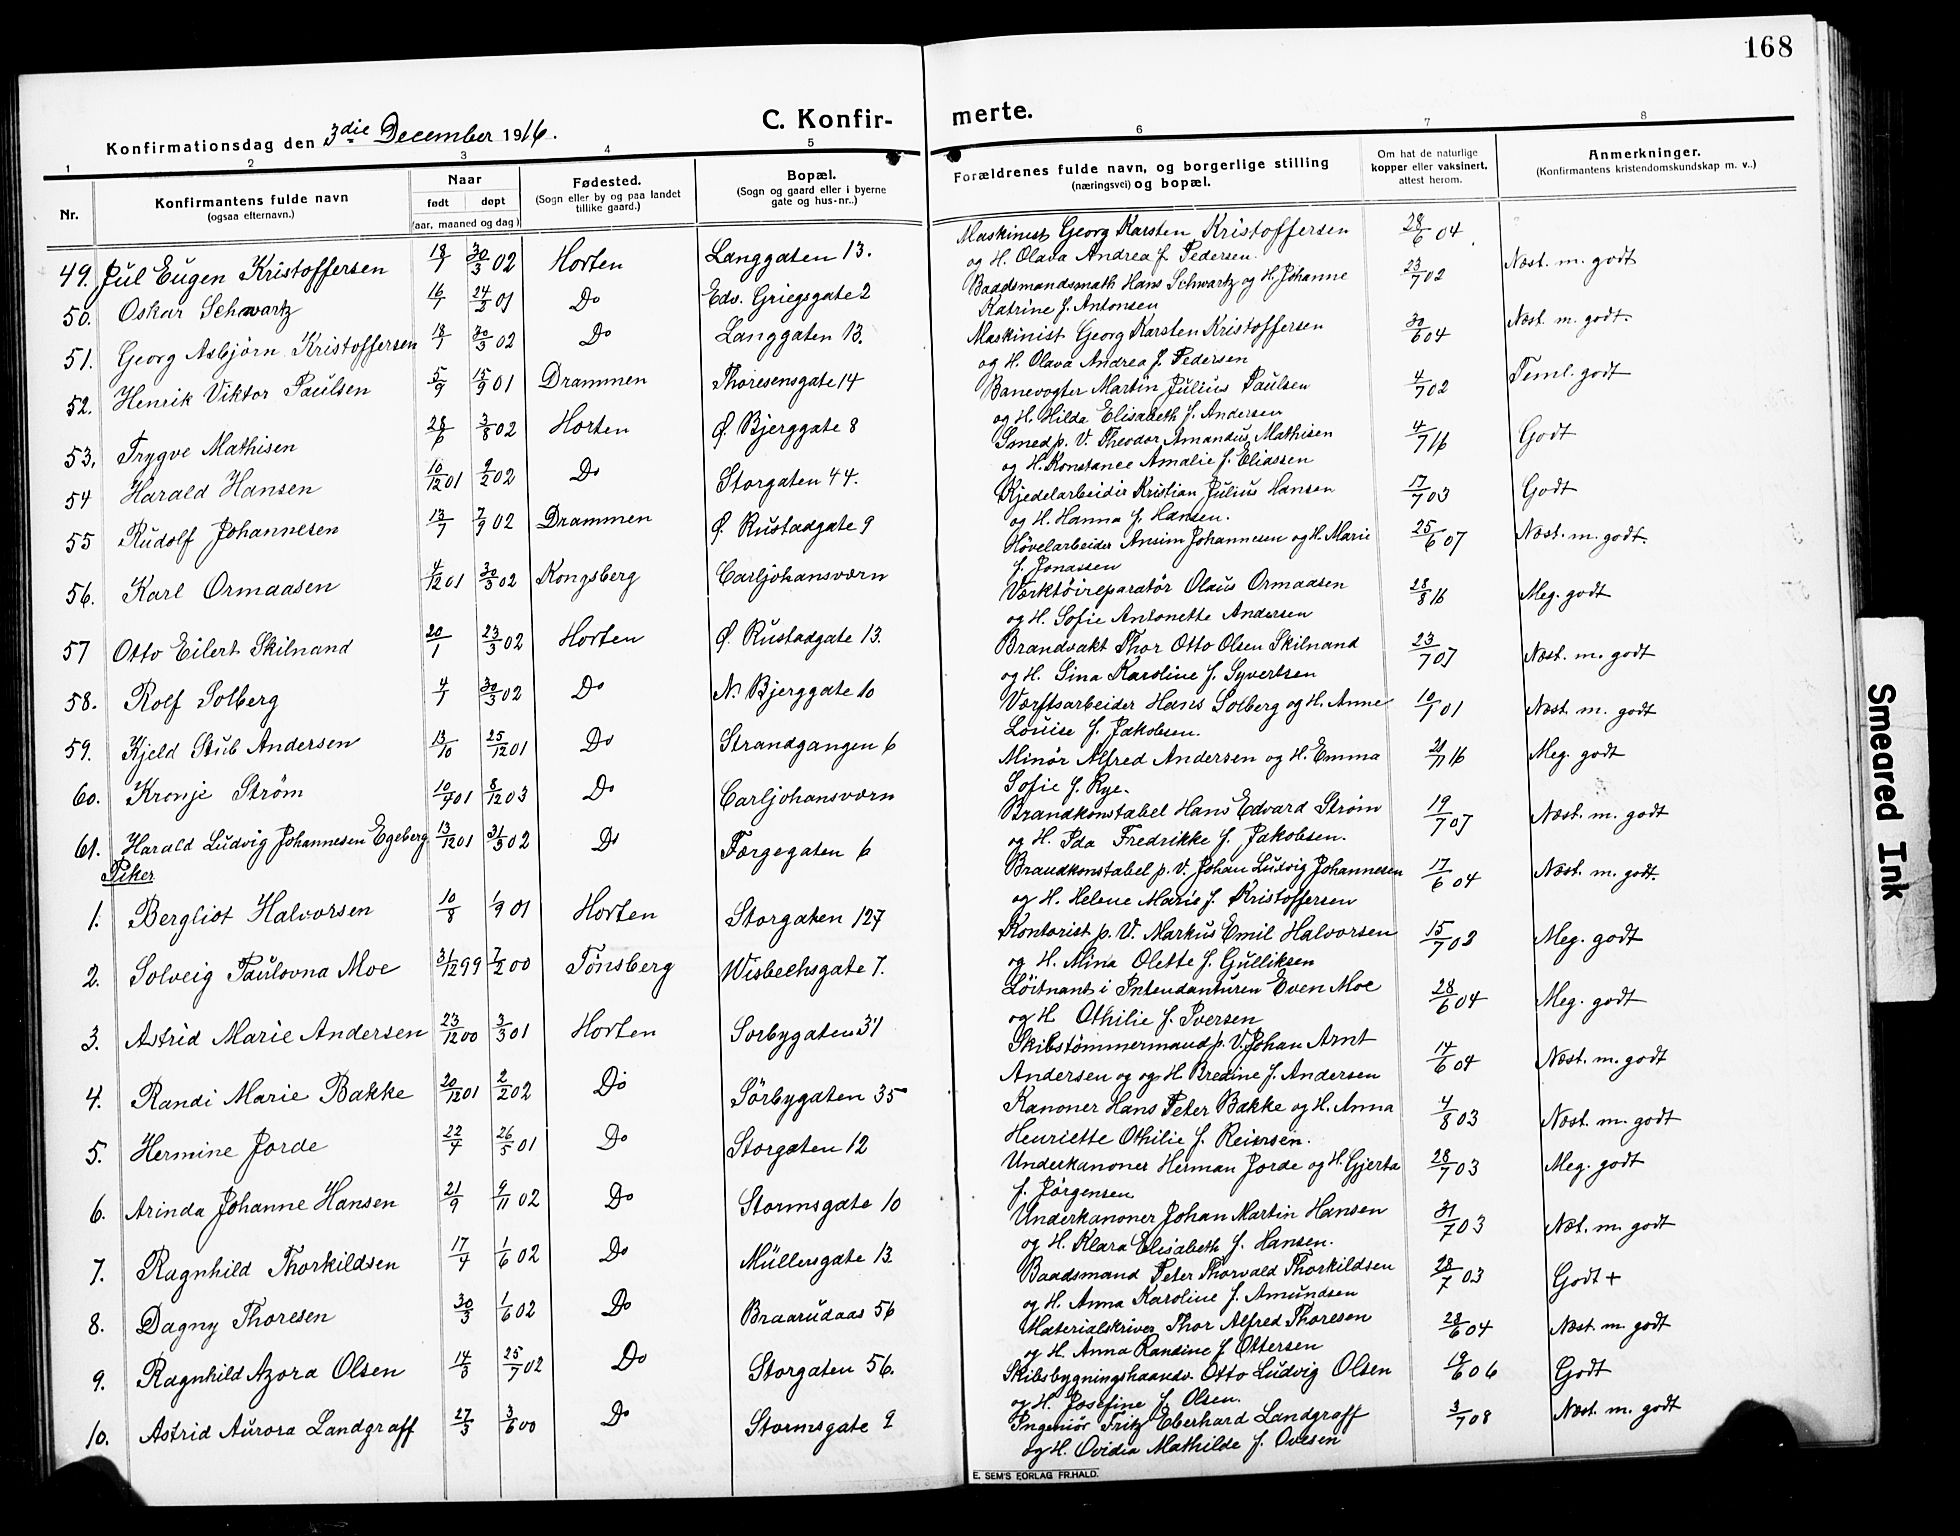 168
C. Konfir-
merte.
Konfirmationsdag den 3die December 1916.
1 2 3 4 5
6 7 8
Nr.
Konfirmantens fulde navn
(ogsaa efternavn.)
Naar
født døpt
(aar, maaned og dag)
Fødested.
(Sogn eller by og paa landet
tillike gaard.)
Bopæl.
(Sogn og gaard eller i byerne
gate og hus-nr..)
Forældrenes fulde navn, og borgerlige stilling
(næringsvei) og bopæl.
Om hat de naturlige
kopper eller vaksinert,
attest herom.
Anmerkninger.
(Konfirmantens kristendomskundskap m. v..)
49. Jul Eugen Kristoffersen 18/1 30/3 02 Horten Langgaten 13. Maskinist Georg Karsten Kristoffersen 28/6 04
og H. Olava Andrea f. Pedersen. Næst. m. godt
50. Oskar Schwartz 16/1 24/3 01 Do Edv. Griegsgate 2 Baadsmandsmath Hans Schwartz og H. Johanne 23/7 02
Katrine f. Antonsen Næst. m. godt.
51. Georg Asbjørn Kristoffersen 18/1 30/3 02 Do Langgaten 13. Maskinist Georg Karsten Kristoffersen 30/6 04
og H. Olava Andrea f. Pedersen Teml. godt
52. Henrik Viktor Paulsen 5/9 15/9 01 Drammen Thoresensgate 14 Banevogter Martin Julius Paulsen 4/7 02
og H. Hilda Elisabeth f. Andersen
53. Trygve Mathisen 28/6 3/8 02 Horten Ø. Bjerggate 8 Smed p. V. Theodor Amandus Mathisen 4/7 16 Godt
og H. Konstance Amalie f. Eliassen
54 Harald Hansen 10/12 01 9/2 02 Do Storgaten 44. Kjedelarbeider Kristian Julius Hansen 17/7 03 Godt
og H. Hanna f. Hansen.
55 Rudolf Johannesen 13/7 7/9 02 Drammen Ø. Rustadgate 9 Høvelarbeider Ansim Johannesen og H. Marie 25/6 07 Næst. m. godt.
f. Jonassen
56. Karl Ormaasen 4/12 01 30/3 02 Kongsberg Carljohansværn Værktøireparatør Olaus Ormaasen 28/8 16 Meg. godt
og H. Sofie Antonette Andersen
57 Otto Eilert Skilnand 20/1 23/3 02 Horten Ø. Rustadgate 13. Brandvakt Thor Otto Olsen Skilnand 23/7 07 Næst. m. godt
og H. Sina Karoline f. Syvertsen
58. Rolf Solberg 4/1 30/3 02 Do N. Bjerggate 10 Værftsarbeider Hans Solberg og H. Anne 10/7 01 Næst. m. godt
Louise f. Jakobsen.
59. Kjeld Stub Andersen 13/10 25/12 01 Do Strandgangen 6 Minør Alfred Andersen og H. Emma 21/7 16 Meg. godt
Sofie f. Rye.
60. Kronje Strøm 10/7 01 8/12 03 Do Carljohansværn Brandkonstabel Hans Edvard Strøm 19/7 07 Næst. m. godt
og H. Ida Fredrikke f. Jakobsen.
61. Harald Ludvig Johannesen Egeberg 13/12 01 31/3 02 Do Færgegaten 6 Brandkonstabel p. V. Johan Ludvig Johannesen 17/6 04 Næst. m. godt.
og H. Helene Marie f. Kristoffersen
Piker
1. Bergliot Halvorsen 10/8 1/9 01 Horten Storgaten 127 Kontorist p. V. Markus Emil Halvorsen 15/7 03 Meg. godt
og H. Mina Olette f. Gulliksen
2. Solveig Paulovna Moe 31/12 99 7/2 00 Tønsberg Wisbechsgate 7. Løitnant i Intendanturen Even Moe 28/6 04 Meg. godt
og H Othilie f. Iversen
3. Astrid Marie Andersen 23/12 00 3/3 01 Horten Sorbygaten 31 Skibstømmermand p. V. Johan Arnt 14/6 04 Næst. m. godt
Andersen og og H Bredine f. Andersen
4. Randi Marie Bakke 20/12 01 2/2 02 Do Sörbygaten 35 Kanoner Hans Peter Bakke og H. Anna 4/8 03 Næst. m. godt
Henriette Othilie f. Reiersen.
5. Hermine Jorde 22/4 26/5 01 Do Storgaten 12 Underkanoner Herman Jorde og H. Gjerta 28/7 03 Meg. godt
f. Jörgensen
6. Arinda Johanne Hansen 21/9 9/11 02 Do Stormsgate 10 Underkanoner Johan Martin Hansen 31/7 03 Næt. m. godt
og H. Klara Elisabeth f. Hansen.
7. Ragnhild Thorkildsen 17/4 1/6 02 Do Müllersgate 13 Baadsmand Peter Thorvald Thorkildsen 28/7 03 Godt +
og H. Anna Karoline f. Amundsen
8. Dagny Thoresen 30/3 1/6 02 Do Braarudaas 56 Materialskriver Thor Alfred Thoresen 28/6 04 Næst m. godt
og H. Anna Randine f Ottersen
9. Ragnhild Azora Olsen 14/3 25/7 02 Do Storgaten 56. Skibsbygningshaandv. Otto Ludvig Olsen 19/6 06 Godt
og H. Josefine f. Olsen.
10. Astrid Aurora Landgraff 27/3 3/6 00 Do Stormsgate 9 Ingeniør Fritz Eberhard Landgraff 3/7 08 Næst. m. godt
og H. Ovidia Mathilde f. Ovesen
E. SEM'S FORLAG FR.HALD.
Smeared Ink